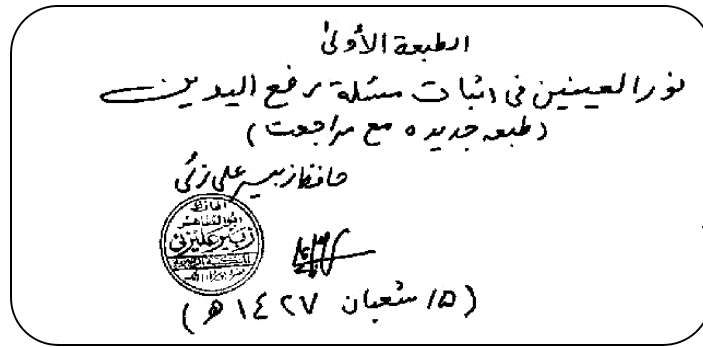 الطبعة الأولىٰ
نور العينين فی اثبات مسئلة رفع اليدين
(طبعہ جدیدہ مع مراجعت)
حافظ زبیر علی زئی
الحافظ
ابو الطاهر
زبیر علیزئی
(۱۵ شعبان ١٤٢٧ھ)